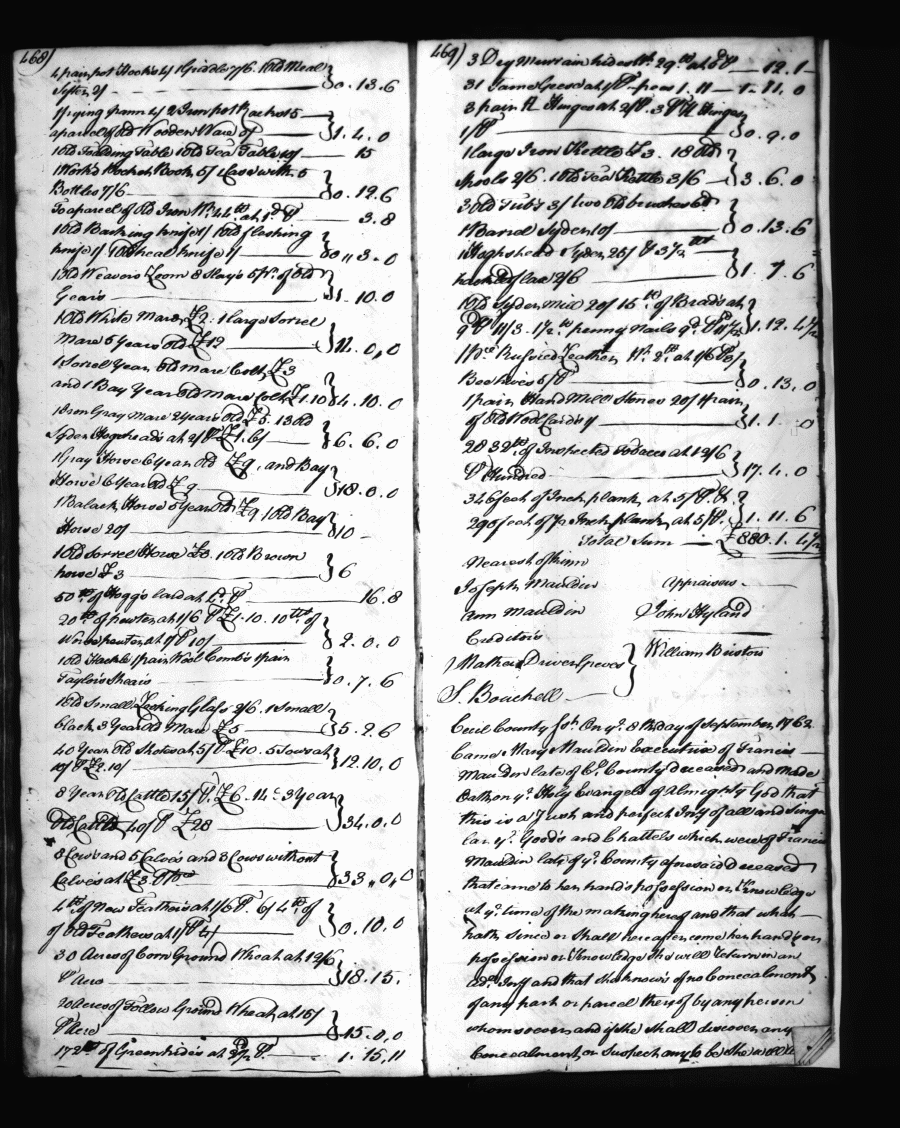 468)
4 pair pot Hooks 4/ 1 Griddle 7/6. 1 Old Meal
Sifter 2/ 0.13.6
1 frying pann 4/ 2 Iron pot Rackes 15
a parcel of Old Wooden Ware 5/ 1.4.0
1 Old Foalding Table 1 Old Tea Table 10/ 15
1 Work'd Pocket Book 5/ 1 Case with 5
Bottles 7/6 0.12.6
To a parcel of Old Iron Wt. 44 lb at 1d P 3.8
1 Old Barking knife 1/ 1 Old fleshing
knife 1/ 1 Old heal knife 1/ 0,,3-0
1 Old Weavers Loom 8 Slay's & Pt. of Old
Gears 1.10.0
1 Old White Mare £2. 1 large Sorrel
Mare 5 Years Old £12 14.0,0
1 Sorrel Year Old Mare Colt £3
and 1 Bay Year Old Mare Colt £1.10 4.10.0
1 Iron Gray Mare 2 years Old £5. 13 Old
Syder Hogshead's at 2/ P £1.6/ 6.6.0
1 Gray Horse 6 Year Old £9, and Bay
Horse 6 Year Old £9 18.0.0
1 Balack Horse 5 Year Old £9 1 Old Bay
Horse 20/ 10 -
1 Old Sorrel Horse £3 1 Old Brown
horse £3 6
50 lb. of Hogg's lard at 4d. P 16.8
20 lb. of pewter at 1/6 P £1.10. 10 lb. of
Worse pewter at 1/ P 10/ 2.0.0
1 Old Hackle 1 pair Wool Comb's 1 pair
Taylor's Shears 0.7.6
1 Old Small Looking Glass 2/6. 1 Small
black 3 Year Old Mare £5 5.2.6
40 Year Old Shotes at 5/ P £10. 5 Sows at
10/ P £2.10/ 12.10.0
8 Year Old Cattle 15/ P. £6. 14 3 Year
Old Cattle 40/ P £28 34.0.0
8 Cow's and 5 Calve's and 3 Cows without
Calves at £3 P 33,,0,0
4 lb of New Feathers at 1/6 P. 6/ 4 lb. of
of Old Feathers at 1/ P 4/ 0.10.0
30 Acres of Corn Ground Wheat at 12/6
P Acre 18.15.
20 Acres of Fallow Ground Wheat at 15/
P Acre 15.0,0
172 lb of Green hides at 2½ P. 1.15,11
469)
3 Dry Murrain hides Wt. 29 lb at 5d P 12.1
31 Tame Geese at 1/ P peice 1.11 1.11.0
3 pair H Hinges at 2/ P. 3 P H Hinges
1/ P 0.9.0
1 large Iron Kettle £3. 18 Old
Spools 2/6. 1 Old Tea Kettle 3/6 3.6.0
3 Old Tubs 3/ two Old brushes 6d
1 Barrel Syder 10/ 0.13.6
1 Hogshead Syder 25/ P 37½
hundred of lax 2/6 1.7.6
1 Old Syder Mill 20/ 15 lb. of Brads at
9d P 11/3. 1½ lb penny Nails 9d. P 1/1½ 1.12.4½
1 Pce Rusored Leather Wt. 2 lb. at 1/6 P 3/
Bee hives 5/ P 0.13.0
1 pair Hand Mill Stones 20/ 1 pair
of Old Wool Card's 1/ 1.1.0
2832 lb. of Inspected Tobacco at 12/6
P Hundred 17.4.0
346 feet of Inch plank at 5/ P. &
290 feet of ½ Inch plank at 5/ P. 1.11.6
Total Sum £880.1.4½
Nearest of kinn
Joseph Mauldin Appraisers
Ann Mauldin John Hyland
Creditors
Mathew Driver Greves William Bristow
S. Bouchell
Cecil County Ss. On ye. 8th day of September 1762
Came Mary Mauldin Executrix of Francis
Mauldin late of Cl. County deceased and made
Oath on ye. Holy Evangels of Almighty God that
this is a Just and perfect Invy of all and singu
lar ye. Good's and Chattels which were of Francis
Mauldin late of ye. County aforesaid deceased
that came to her hand's possession or knowledge
at ye. time of the making hereof and that what
hath since or Shall hereafter come her hands or
possession or knowledge She will return in an
Add. Invy and that She know's of no Concealment
of any part or parcel thereof by any person
whomsoever and if she shall discover any
Concealment or Suspect any to be She will